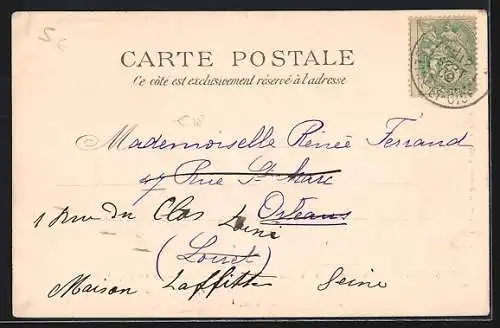 CARTE POSTALE
Ce côté est exclusivement réservé à l'adresse
Mademoiselle Renée Ferrand
47 Rue St Marc
1 Rue du Clos
Orléans
(Loiret)
Maison Laffitte Seine